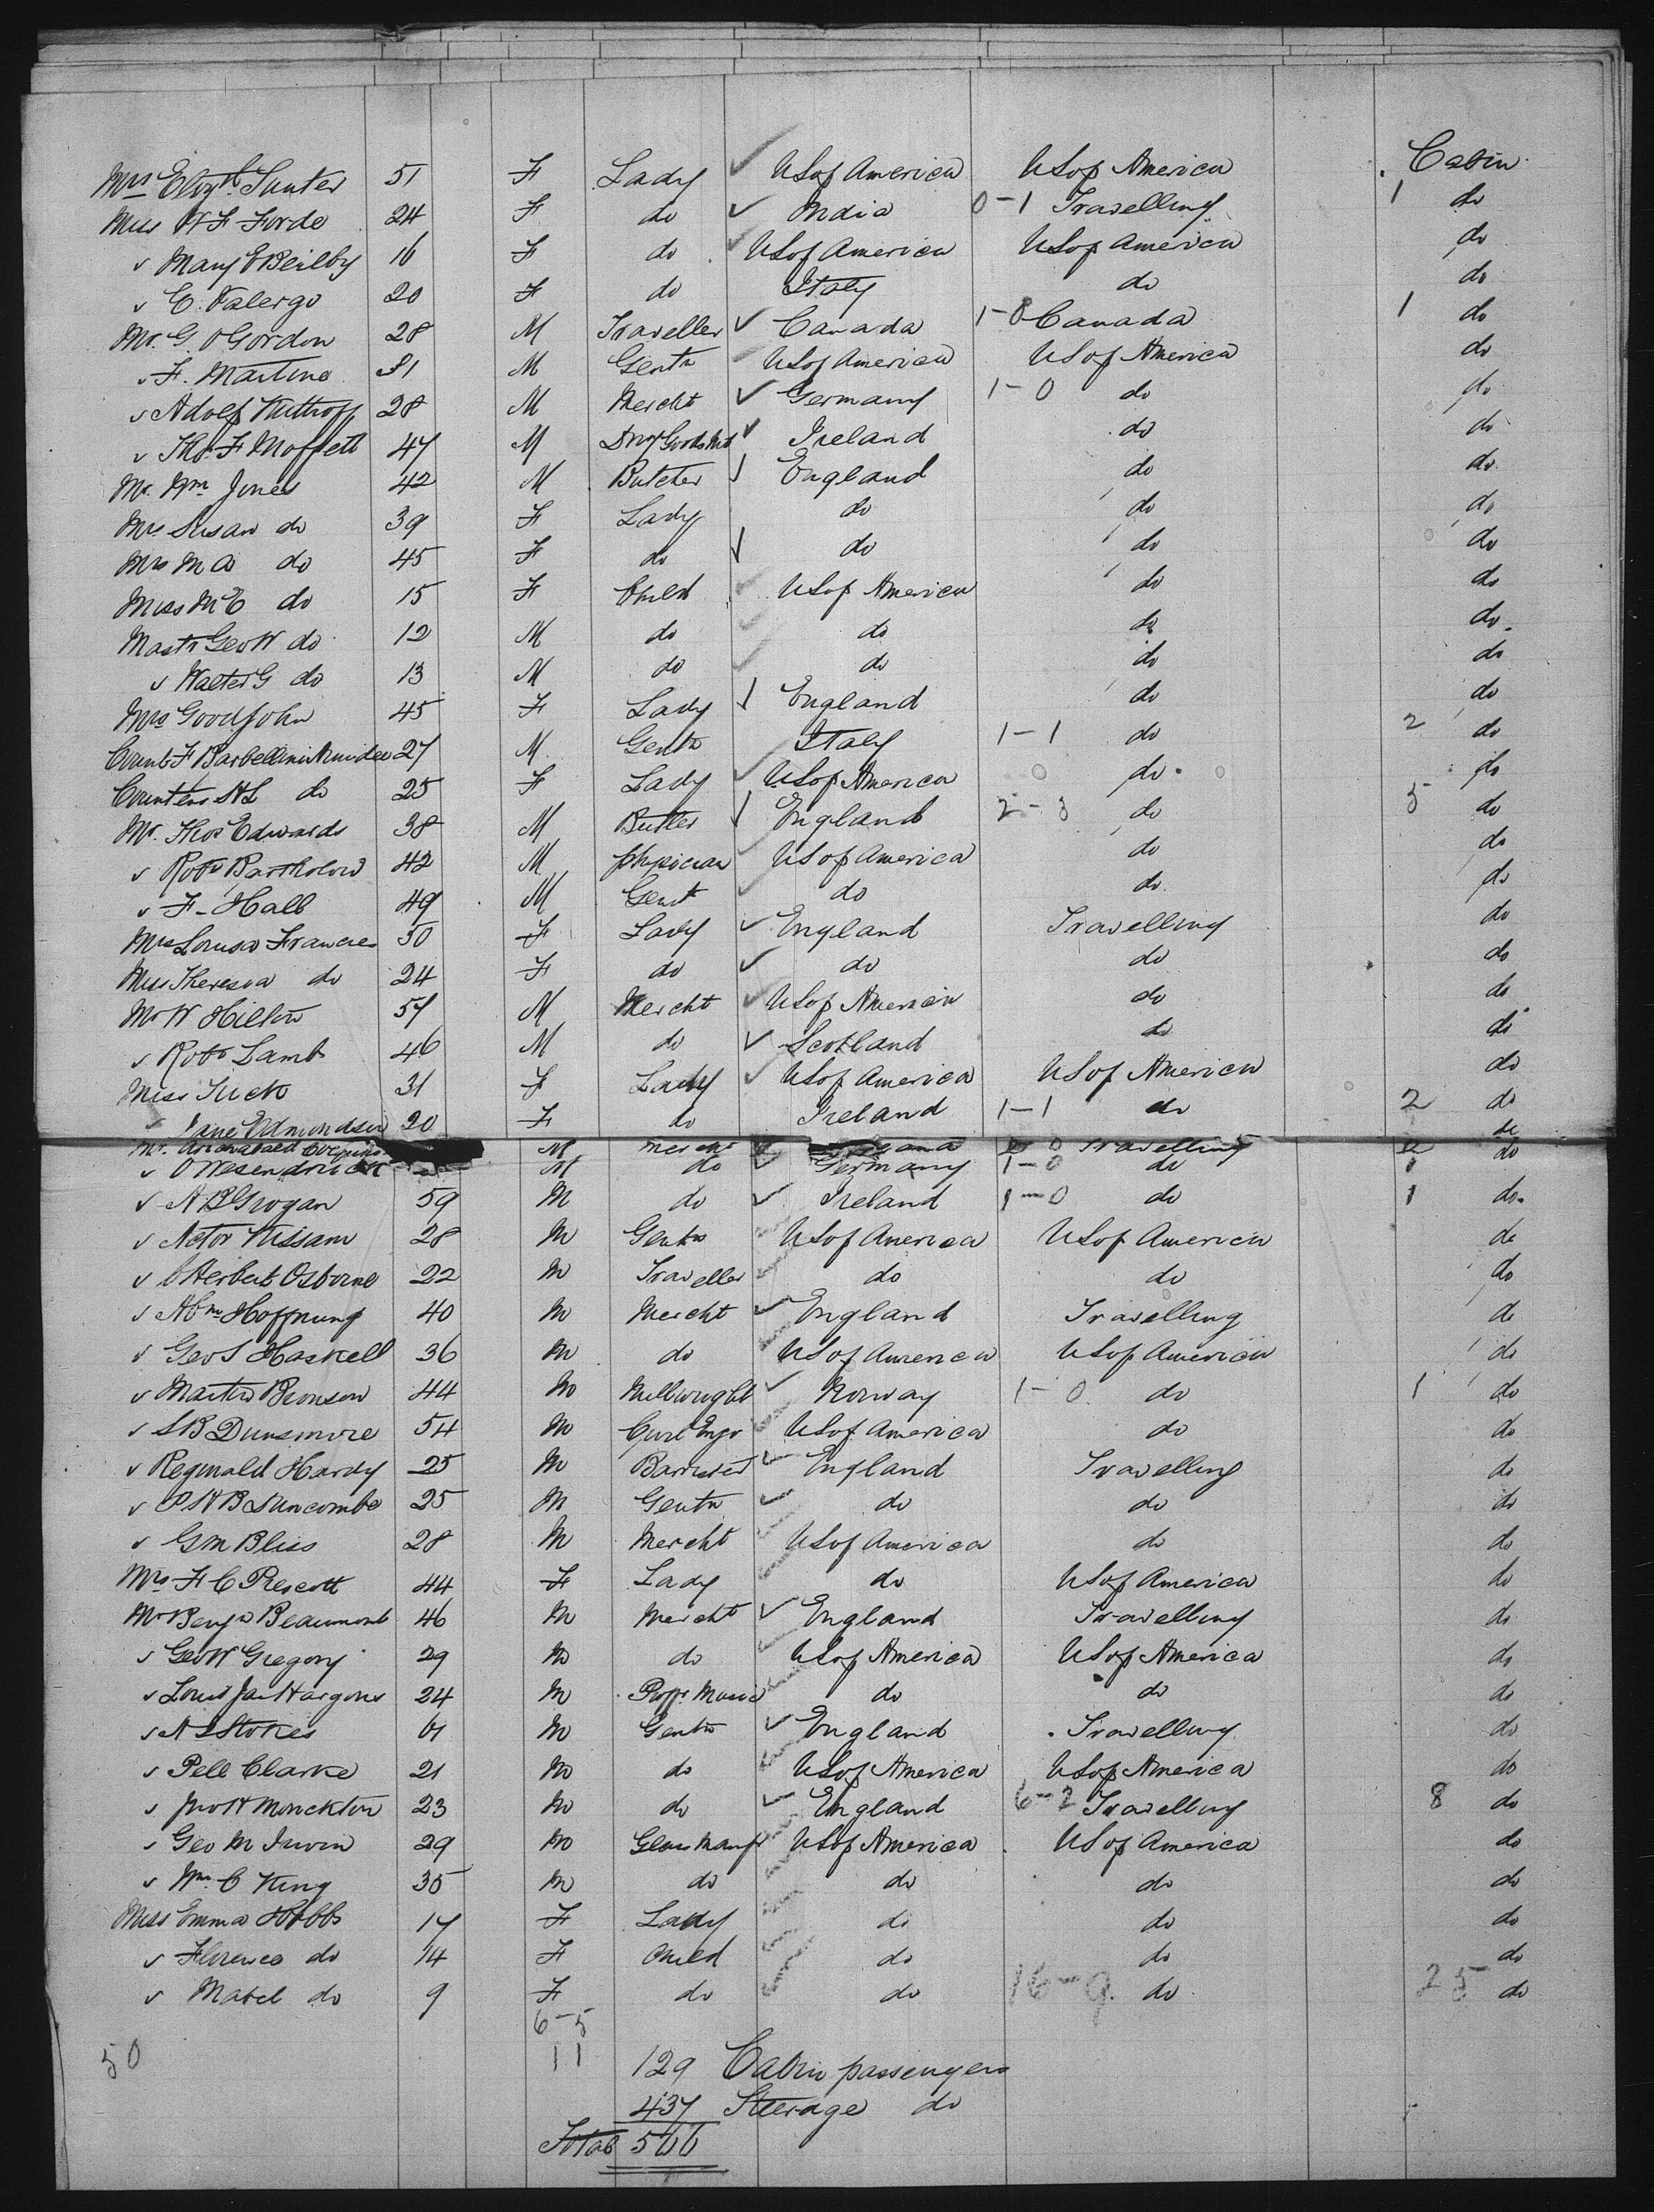 Mrs Elizth Sunter 51 F Lady USof America USof America Cabin
Miss W F Forde 24 F do India 0-1 Travelling 1 do
" Mary E Beilby 16 F do USof America USof America do
" C. Valergo 20 F do Italy do do
Mr. G O Gordon 28 M Traveller Canada 1-0 Canada 1 do
" F. Martine 31 M Gentn USof America USof America do
" Adolf 28 M Mercht Germany 1-0 do do
" Thos. F Moffett 47 M Dry Goods Ireland do do
Mr. Wm Jones 42 M Butcher England do do
Mrs Susan do 39 F Lady do do do
Mrs M A do 45 F do do do do
Miss M E do 15 F Child USof America do do
Mastr Geo W do 12 M do do do do
" Walter G do 13 M do do do do
Mrs Goodjohn 45 F Lady England do do
Count F Barbellini 27 M Gentn Italy 1-1 do 2 do
Countess do 25 F Lady USof America do do
Mr. Thos Edwards 38 M Butler England 2-3 do 5 do
" Robt Bartholow 42 M physician USof America do do
" F. Hall 49 M Gent do do do
Mrs Louisa Frances 50 F Lady England Travelling do
Miss Theresa do 24 F do do do do
Mr W Hilton 57 M Mercht USof America do do
" Robt Lamb 46 M do Scotland do do
Miss Tuck 31 F Lady USof America USof America do
" Jane Edmundson 20 F do Ireland 1-1 do 2 do
Mr. M Mercht Travelling do
" O Wesendonck M do Germany 1-0 do 1 do
" A B Grogan 59 M do Ireland 1-0 do 1 do
" Kissam 28 M Gentn USof America USof America do
" Herbert Osborne 22 M Traveller do do do
" Abm Hoffnung 40 M Mercht England Travelling do
" Geo S Haskell 36 M do USof America USof America do
" Martin Bronson 44 M Millwright Norway 1-0 do 1 do
" S B Dunsmore 54 M Civil Engr USof America do do
" Reginald Hardy 25 M Barrister England Travelling do
" Duncombe 25 M Gentn do do do
" G M Bliss 28 M Mercht USof America do do
Mrs F C Prescott 44 F Lady do USof America do
Mr Benjn Beaumont 46 M Mercht England Travelling do
" Geo W Gregory 29 M do USof America USof America do
" Louis Jas 24 M Proffr Music do do do
" A S Stokes 61 M Gentn England Travelling do
" Pell Clarke 21 M do USof America USof America do
" Jno H Monckton 23 M do England 6-2 Travelling 8 do
" Geo M Irwin 29 M Glass Manfr USof America USof America do
" Wm. C King 35 M do do do do
Miss Emma Hobbs 17 F Lady do do do
" Florence do 14 F Child do do do
" Mabel do 9 F do do 16-9 do 25 do
6-5
50 11 129 Cabin passengers
437 Steerage do
Total 566